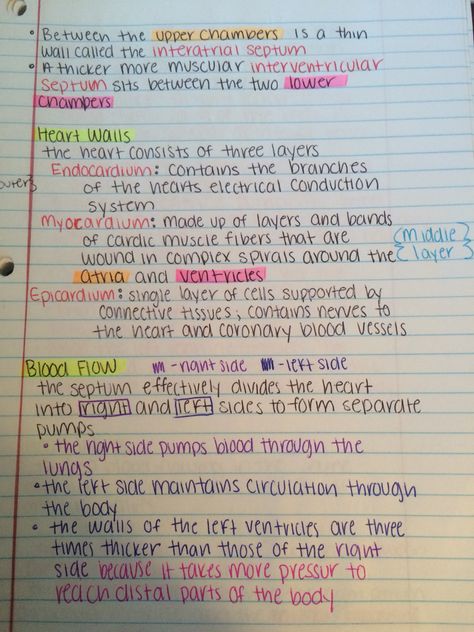 • Between the upper chambers is a thin
wall called the interatrial septum
• A thicker more muscular interventricular
septum sits between the two lower
chambers
Heart Walls
the heart consists of three layers
Endocardium: contains the branches
outer}
of the hearts electrical conduction
system
Myocardium: made up of layers and bands
of cardic muscle fibers that are {middle}
wound in complex spirals around the {layer}
atria and ventricles
Epicardium: single layer of cells supported by
connective tissues, contains nerves to
the heart and coronary blood vessels
Blood Flow - right side - left side
the septum effectively divides the heart
into right and left sides to form separate
pumps
• the right side pumps blood through the
lungs
• the left side maintains circulation through
the body
• the walls of the left ventricles are three
times thicker than those of the right
side because it takes more pressur to
reach distal parts of the body